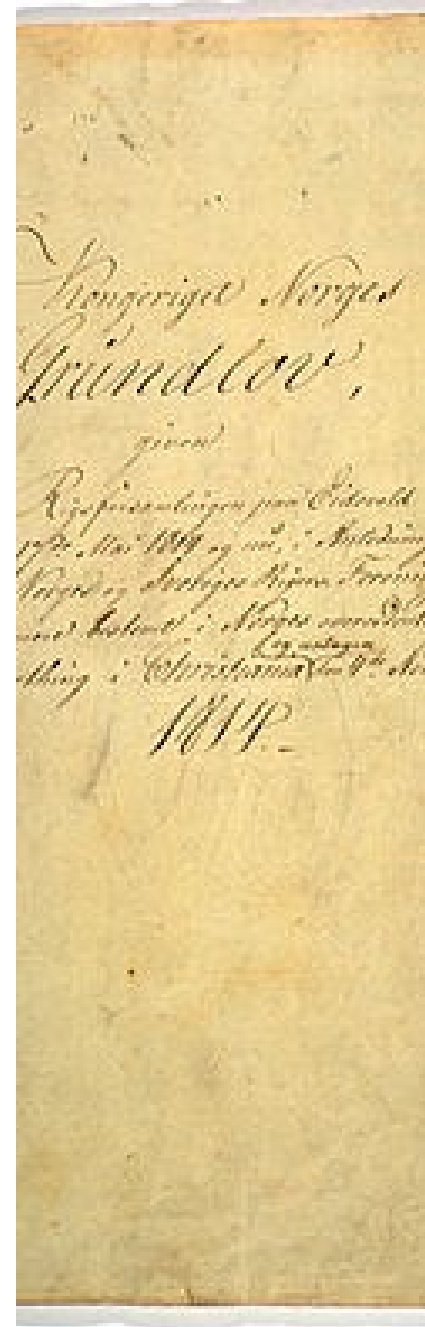 Kongeriget Norges
Grundlov,
given
Rigsforsamlingen paa Eidsvold
17de Mai 1814 og nu, i Anledning
Norges og Sveriges Rigers Foreni
bestemt i Norges
og antagen
thing i Christiania den 4de Nov
1814.